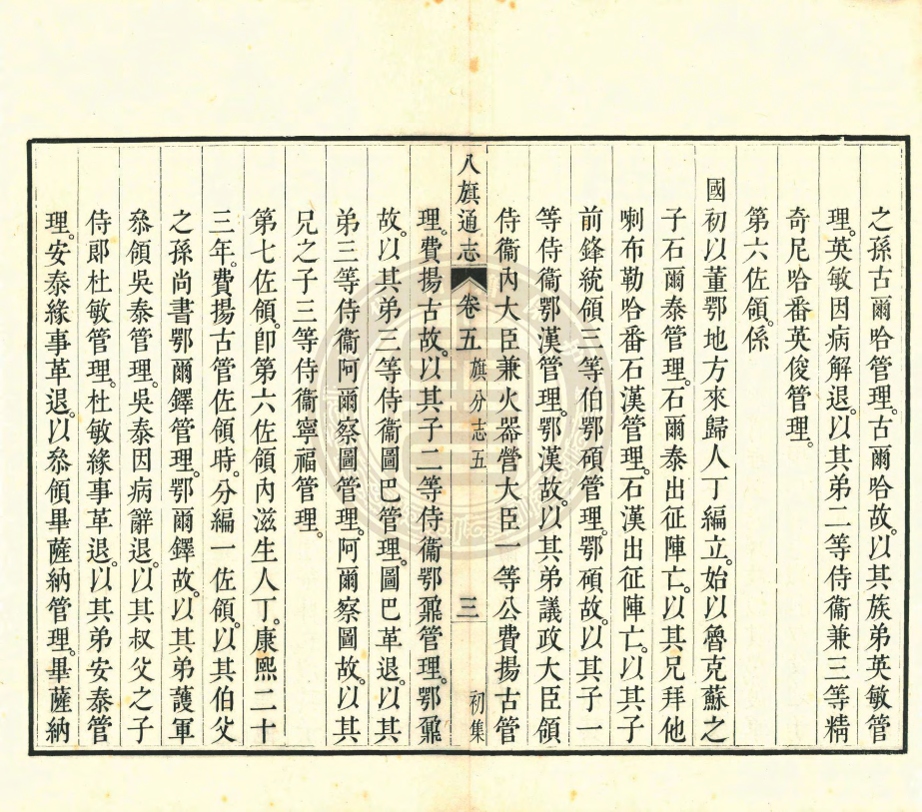 之孫古爾哈管理。古爾哈故。以其族弟英敏管
理。英敏因病解退。以其弟二等侍衞兼三等精
奇尼哈番英俊管理。
第六佐領。係
國初以董鄂地方來歸人丁編立。始以魯克蘇之
子石爾泰管理。石爾泰出征陣亡。以其兄拜他
喇布勒哈番石漢管理。石漢出征陣亡。以其子
前鋒統領三等伯鄂碩管理。鄂碩故。以其子一
等侍衞鄂漢管理。鄂漢故。以其弟議政大臣領
侍衞內大臣兼火器營大臣一等公費揚古管
八旗通志 卷五 旗分志五 三 初集
理。費揚古故。以其子二等侍衞鄂鼐管理。鄂鼐
故。以其弟三等侍衞圖巴管理。圖巴革退。以其
弟三等侍衞阿爾察圖管理。阿爾察圖故。以其
兄之子三等侍衞寧福管理。
第七佐領。卽第六佐領內滋生人丁。康熙二十
三年。費揚古管佐領時。分編一佐領。以其伯父
之孫尚書鄂爾鐸管理。鄂爾鐸故。以其弟護軍
叅領吳泰管理。吳泰因病辭退。以其叔父之子
侍郎杜敏管理。杜敏緣事革退。以其弟安泰管
理。安泰緣事革退。以叅領畢薩納管理。畢薩納